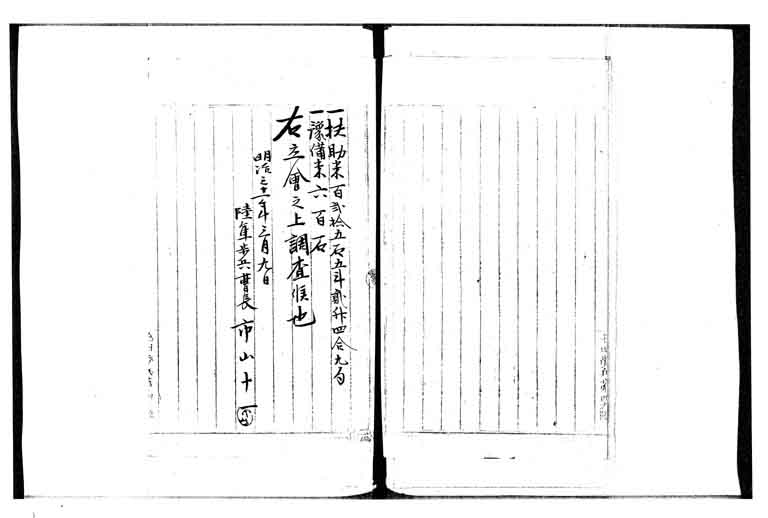 一扶助米百弐拾五石五斗貳升四合九勺
一豫備米六百石
右立會之上調査候也
明治三十一年三月九日
陸軍歩兵曹長 市山十一